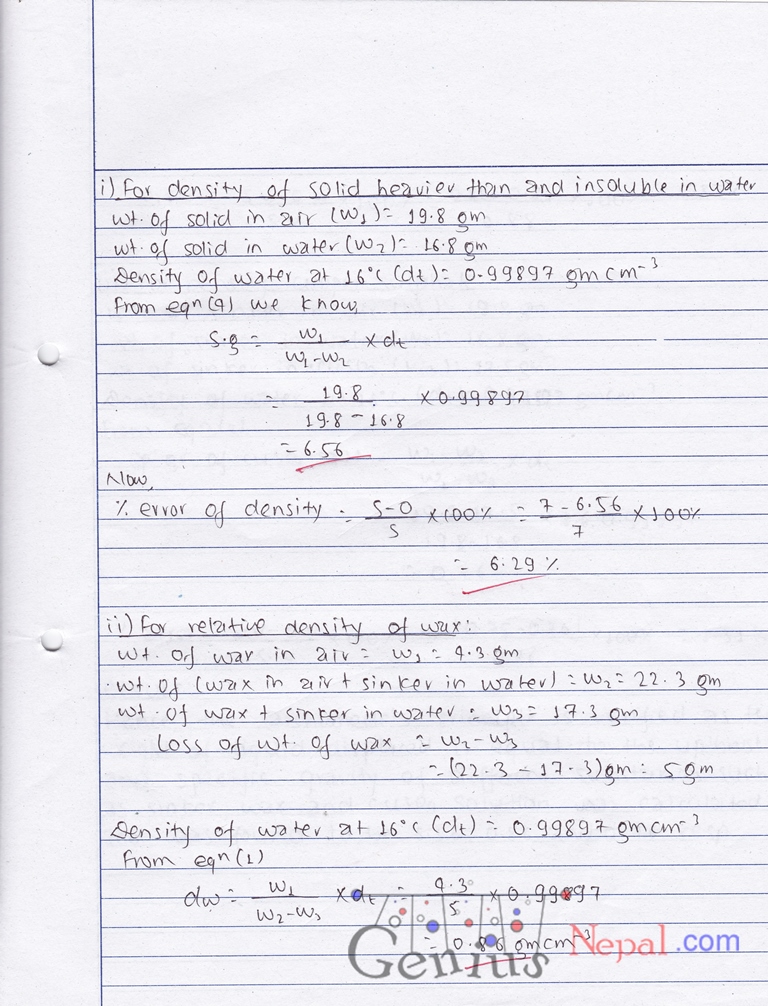 i) For density of solid heavier than and insoluble in water
wt. of solid in air (w₁) = 19.8 gm
wt. of solid in water (w₂) = 16.8 gm
Density of water at 16°c (dt) = 0.99897 gm cm⁻³
From eqn (4) we know,
S.g = w₁ / w₁-w₂ × dt
= 19.8 / 19.8 - 16.8 × 0.99897
= 6.56
Now,
% error of density = S-O / S × 100% = 7 - 6.56 / 7 × 100%
= 6.29 %
ii) For relative density of wax:
wt. of wax in air = w₁ = 4.3 gm
wt. of (wax in air + sinker in water) = w₂ = 22.3 gm
wt. of wax + sinker in water = w₃ = 17.3 gm
Loss of wt. of wax = w₂ - w₃
= (22.3 - 17.3) gm = 5 gm
Density of water at 16°c (dt) = 0.99897 gm cm⁻³
From eqn (1)
dw = w₁ / w₂-w₃ × dt = 4.3 / 5 × 0.99897
= 0.86 gm cm⁻³
Genius Nepal.com